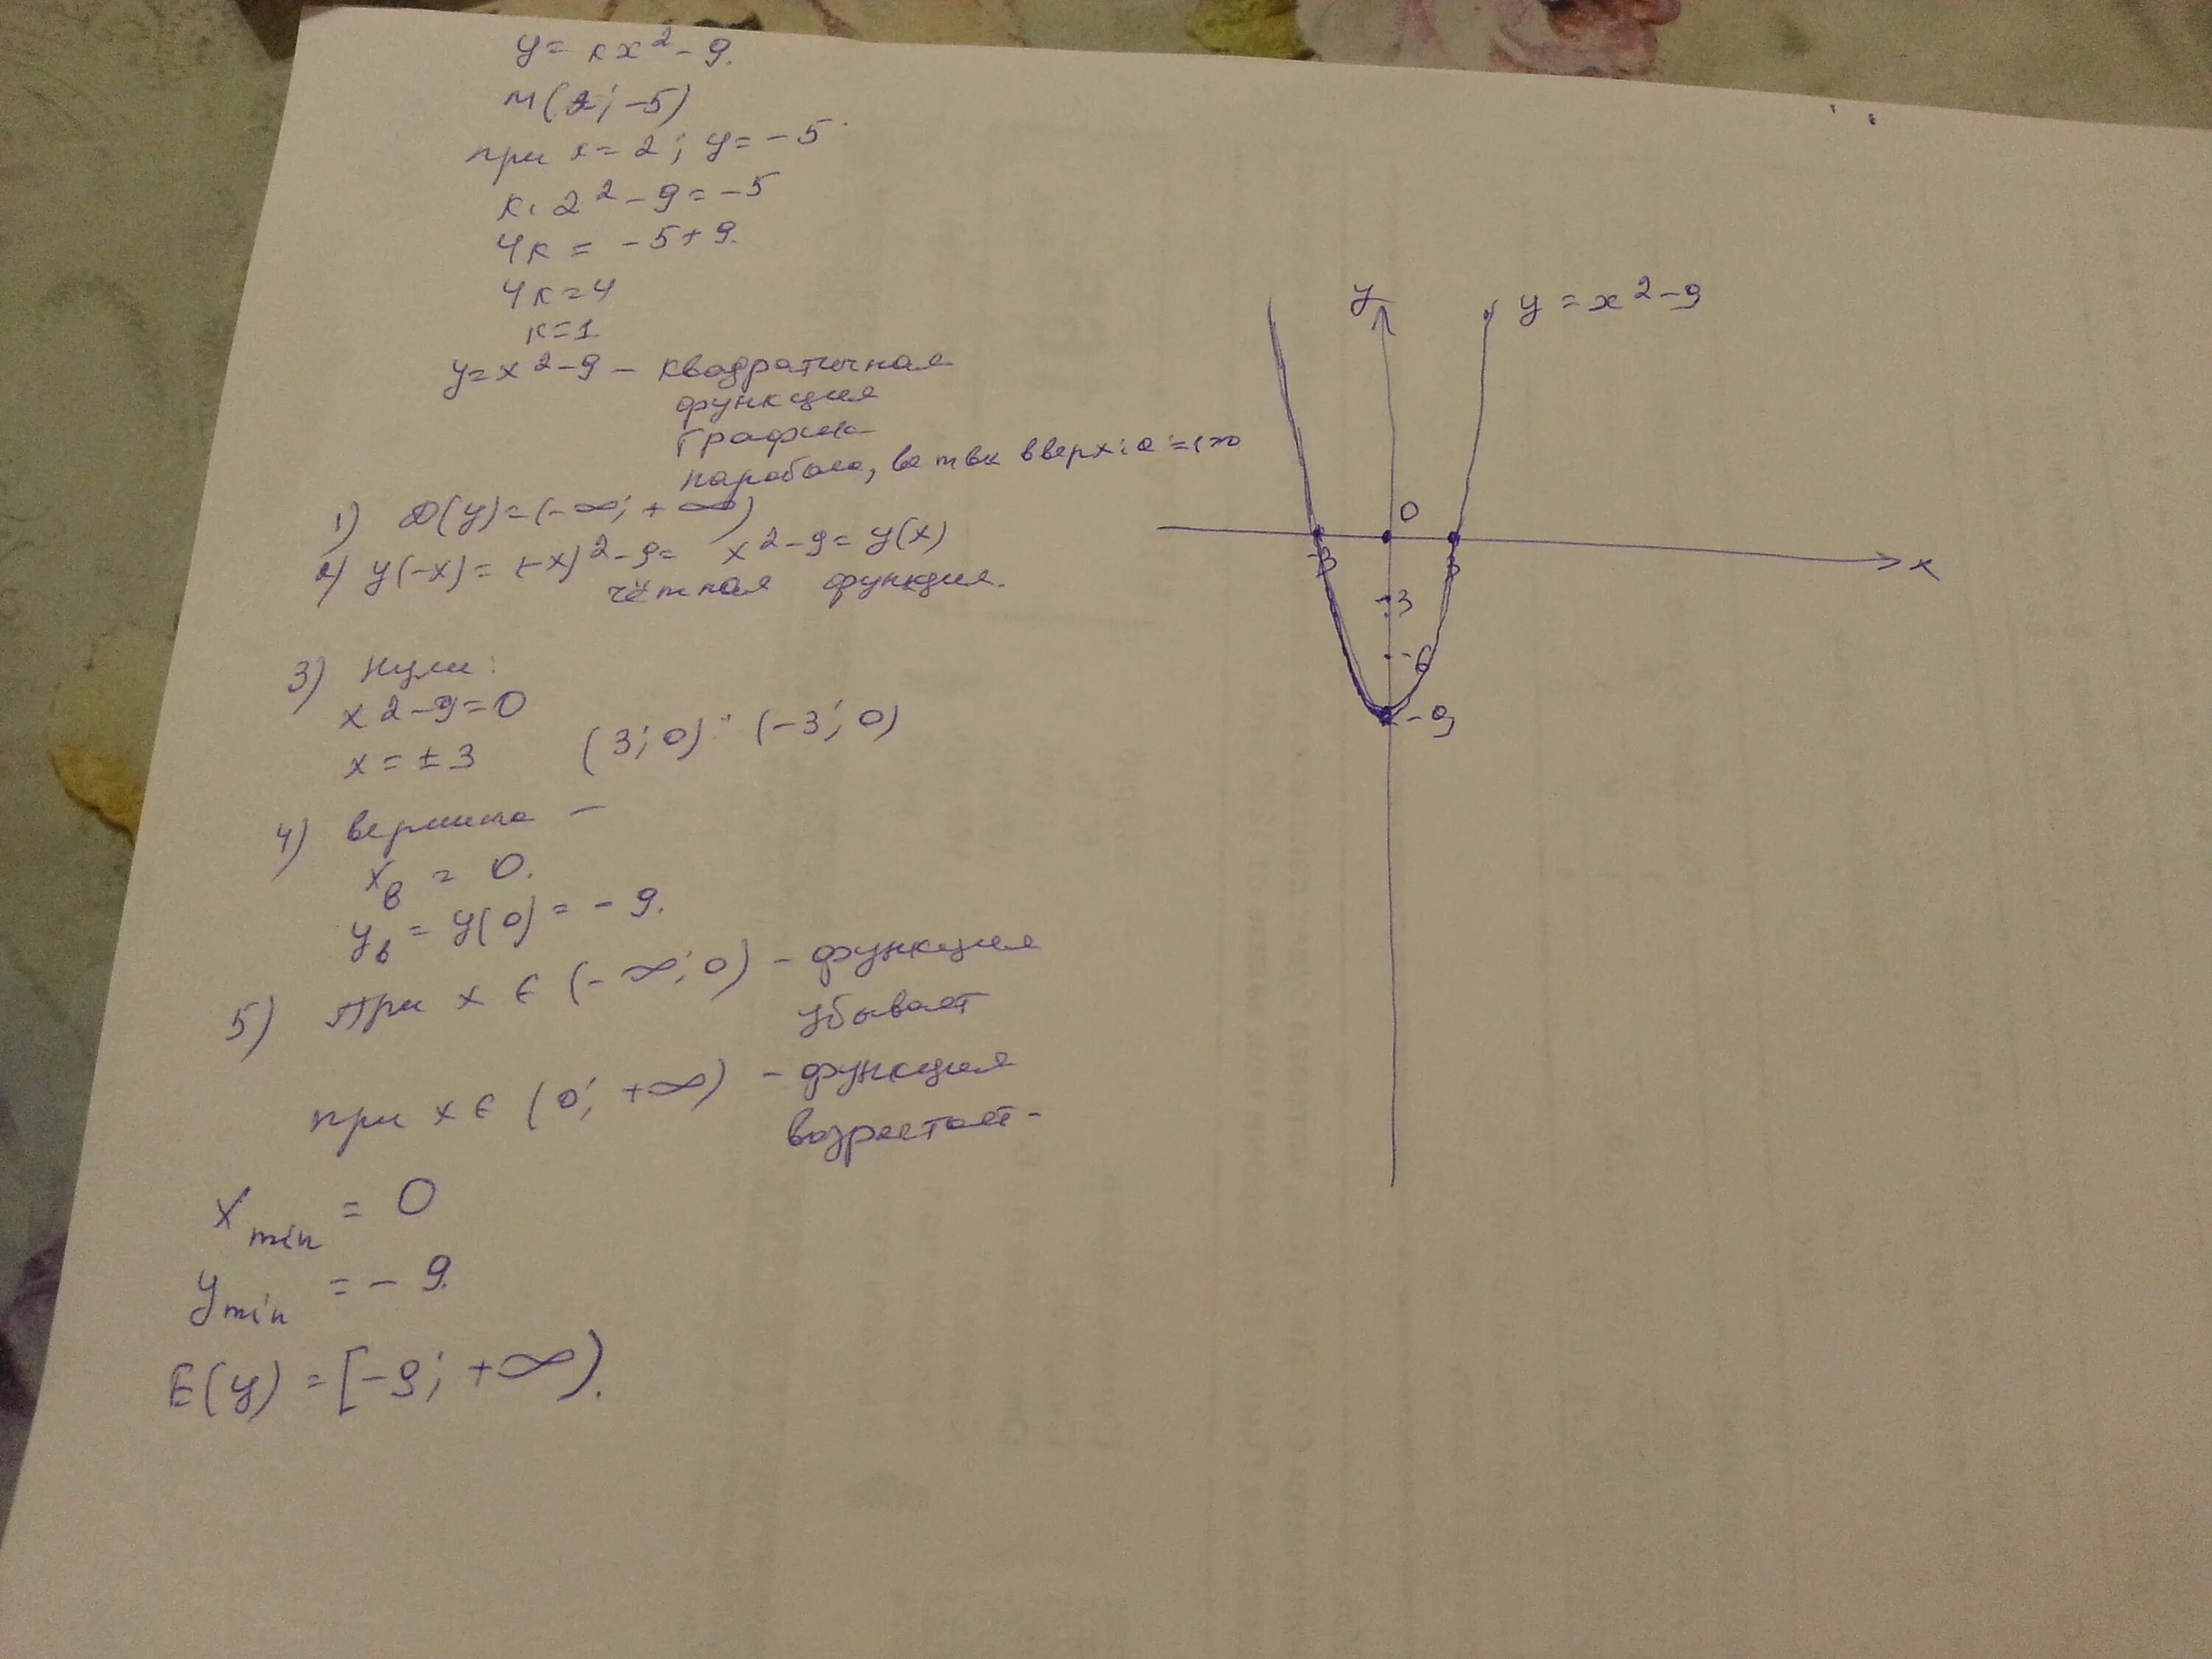 y = кx² - 9.
М(2; -5)
при x = 2; y = -5
к· 2² - 9 = -5
4к = -5 + 9.
4к = 4
к = 1
y = x² - 9 - квадратичная
функция
График
парабола, ветви вверх: a = 1 > 0
1) D(y) = (-∞; +∞)
2) y(-x) = (-x)² - 9 = x² - 9 = y(x)
чётная функция.
3) Нули:
x² - 9 = 0
x = ± 3 (3; 0) (-3; 0)
4) вершина -
xв = 0.
yв = y(0) = - 9.
5) При x ∈ (-∞; 0) - функция
убывает
при x ∈ (0; +∞) - функция
возрастает
x min = 0
y min = - 9.
E(y) = [-9; +∞).
y
y = x² - 9
0
-3
3
x
-3
-6
-9